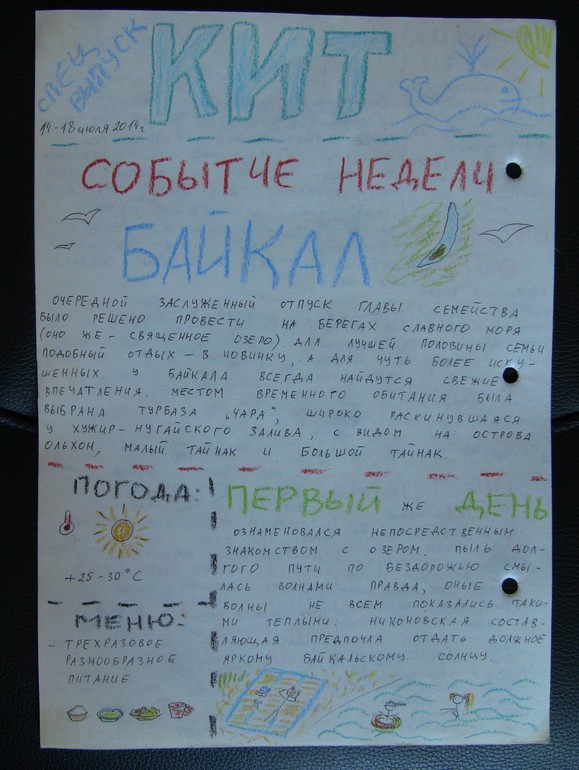 СПЕЦ
ВЫПУСК
КИТ
14-18 июля 2014г
СОБЫТИЕ НЕДЕЛИ
БАЙКАЛ
ОЧЕРЕДНОЙ ЗАСЛУЖЕННЫЙ ОТПУСК ГЛАВЫ СЕМЕЙСТВА
БЫЛО РЕШЕНО ПРОВЕСТИ НА БЕРЕГАХ СЛАВНОГО МОРЯ
(ОНО ЖЕ - СВЯЩЕННОЕ ОЗЕРО) ДЛЯ ЛУЧШЕЙ ПОЛОВИНЫ СЕМЬИ
ПОДОБНЫЙ ОТДЫХ - В НОВИНКУ, А ДЛЯ ЧУТЬ БОЛЕЕ ИСКУ-
ШЕННЫХ У БАЙКАЛА ВСЕГДА НАЙДУТСЯ СВЕЖИЕ
ВПЕЧАТЛЕНИЯ. МЕСТОМ ВРЕМЕННОГО ОБИТАНИЯ БЫЛА
ВЫБРАНА ТУРБАЗА "ЧАРА", ШИРОКО РАСКИНУВШАЯСЯ
У ХУЖИР-НУГАЙСКОГО ЗАЛИВА, С ВИДОМ НА ОСТРОВА
ОЛЬХОН, МАЛЫЙ ТАЙНАК И БОЛЬШОЙ ТАЙНАК.
ПОГОДА:
+25-30°С
МЕНЮ:
- ТРЕХРАЗОВОЕ
РАЗНООБРАЗНОЕ
ПИТАНИЕ
ПЕРВЫЙ ЖЕ ДЕНЬ
ОЗНАМЕНОВАЛСЯ НЕПОСРЕДСТВЕННЫМ
ЗНАКОМСТВОМ С ОЗЕРОМ. ПЫЛЬ ДОЛ-
ГОГО ПУТИ ПО БЕЗДОРОЖЬЮ СМЫ-
ЛАСЬ ВОЛНАМИ. ПРАВДА, ОНЫЕ
ВОЛНЫ НЕ ВСЕМ ПОКАЗАЛИСЬ ТАКИ-
МИ ТЕПЛЫМИ: НИКОНОВСКАЯ СОСТАВ-
ЛЯЮЩАЯ ПРЕДПОЧЛА ОТДАТЬ ДОЛЖНОЕ
ЯРКОМУ БАЙКАЛЬСКОМУ СОЛНЦУ.